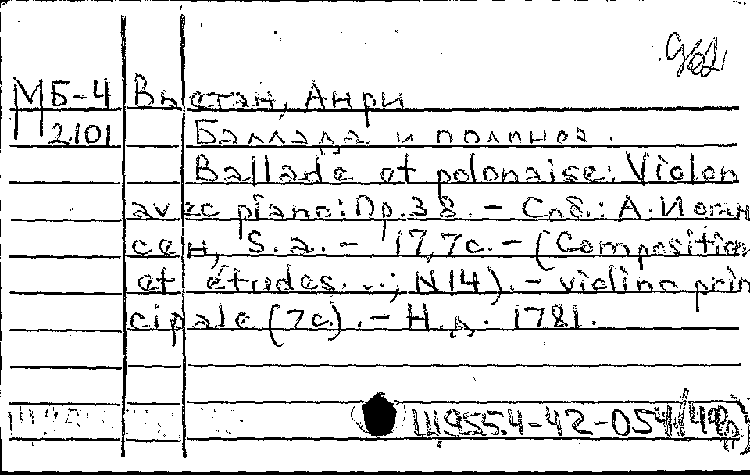 962
МБ-4 Вьетан, Анри
2101 Баллада и полонез.
Ballade et polonaise: Violon
avec piano: Op. 38. - Спб.: А. Иоган
сен, S. a. - 17, 7с. - (Composition
et études...; N 14). - violino prin
cipale (7c.). - Н. д. 1781.
Ш9554-42-054/4(